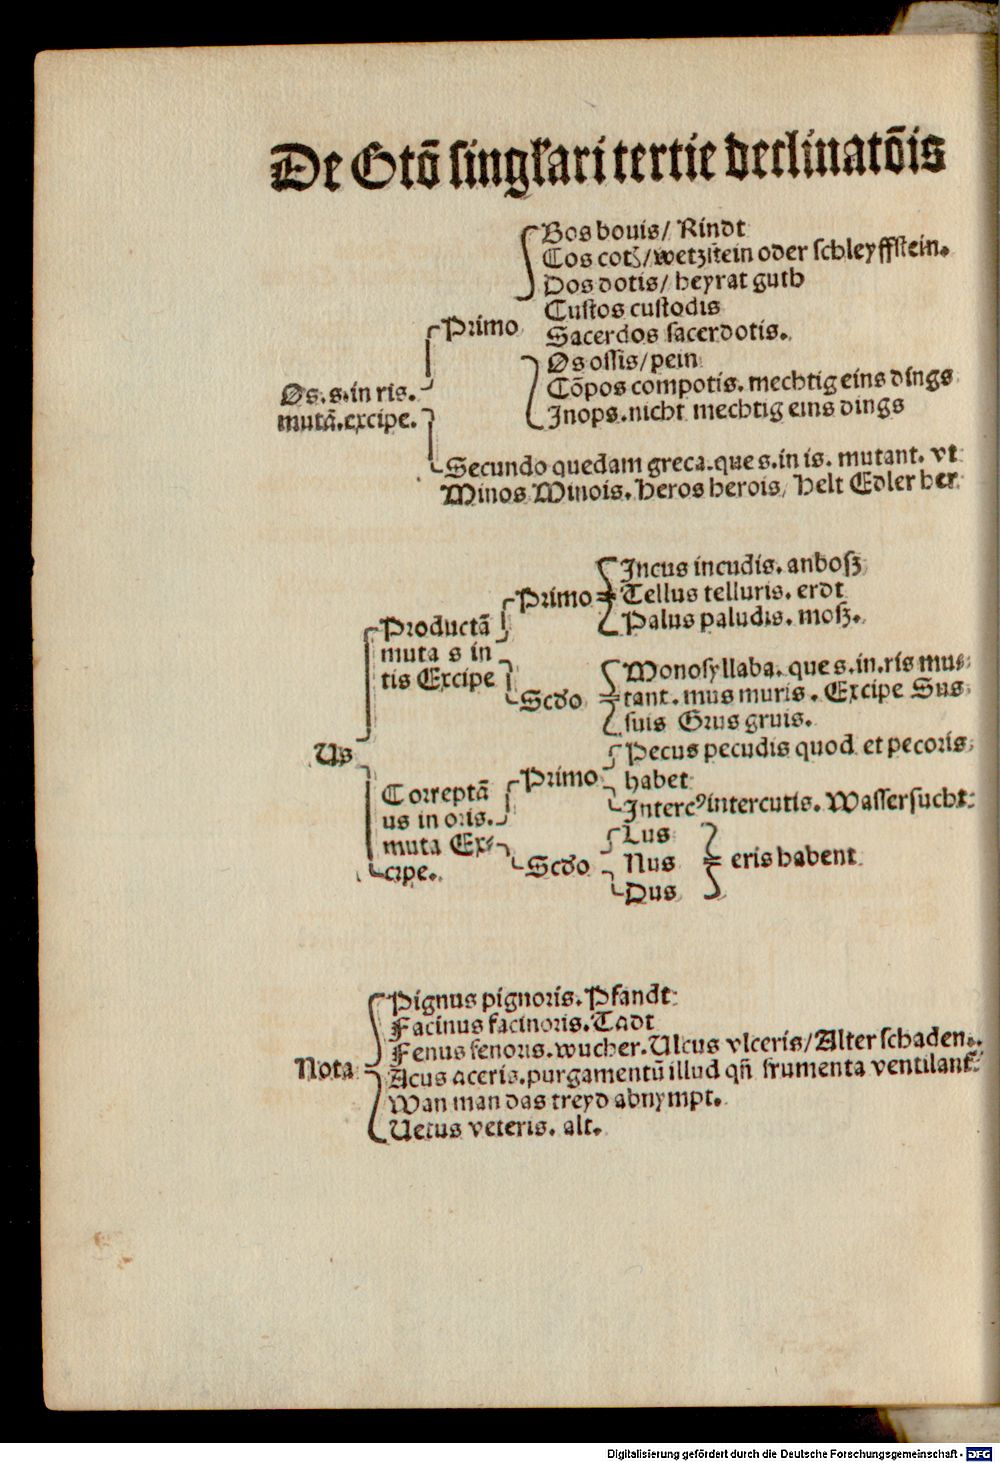 De Gtō singkari tertie declinatōis
Bos bouis/ Rindt
Cos cotꝭ/wetzstein oder schleyffstein.
Dos dotis/ heyrat guth
Custos custodis
Primo
Sacerdos sacerdotis.
Os ossis/pein
Os. s.in ris.
Cōpos compotis. mechtig eins dings
mutā.excipe.
Inops.nicht mechtig eins dings
Secundo quedam greca.que s.in is. mutant. vt
Minos Minois. Heros herois/ Helt Edler her
Incus incudis. anboß
Primo
Tellus telluris. erdt
Palus paludis. moß.
Productā
muta s in
tis Excipe
Monosyllaba. que s.in.ris mu⸗
Scdo
tant. mus muris. Excipe Sus
suis Grus gruis.
Us
Pecus pecudis quod et pecoris
Primo
habet
Intercꝰ intercutis. Wassersucht
Correptā
us in oris.
muta Ex⸗
cipe.
Lus
Scdo
Nus
eris habent
Dus
Pignus pignoris. Pfandt
Facinus facinoris. Tadt
Fenus fenoris. wucher. Ulcus vlceris/Alter schaden.
Nota
Acus aceris. purgamentū illud qñ frumenta ventilant
Wan man das treyd abnympt.
Uetus veteris. alt.
Digitalisierung gefördert durch die Deutsche Forschungsgemeinschaft - DFG